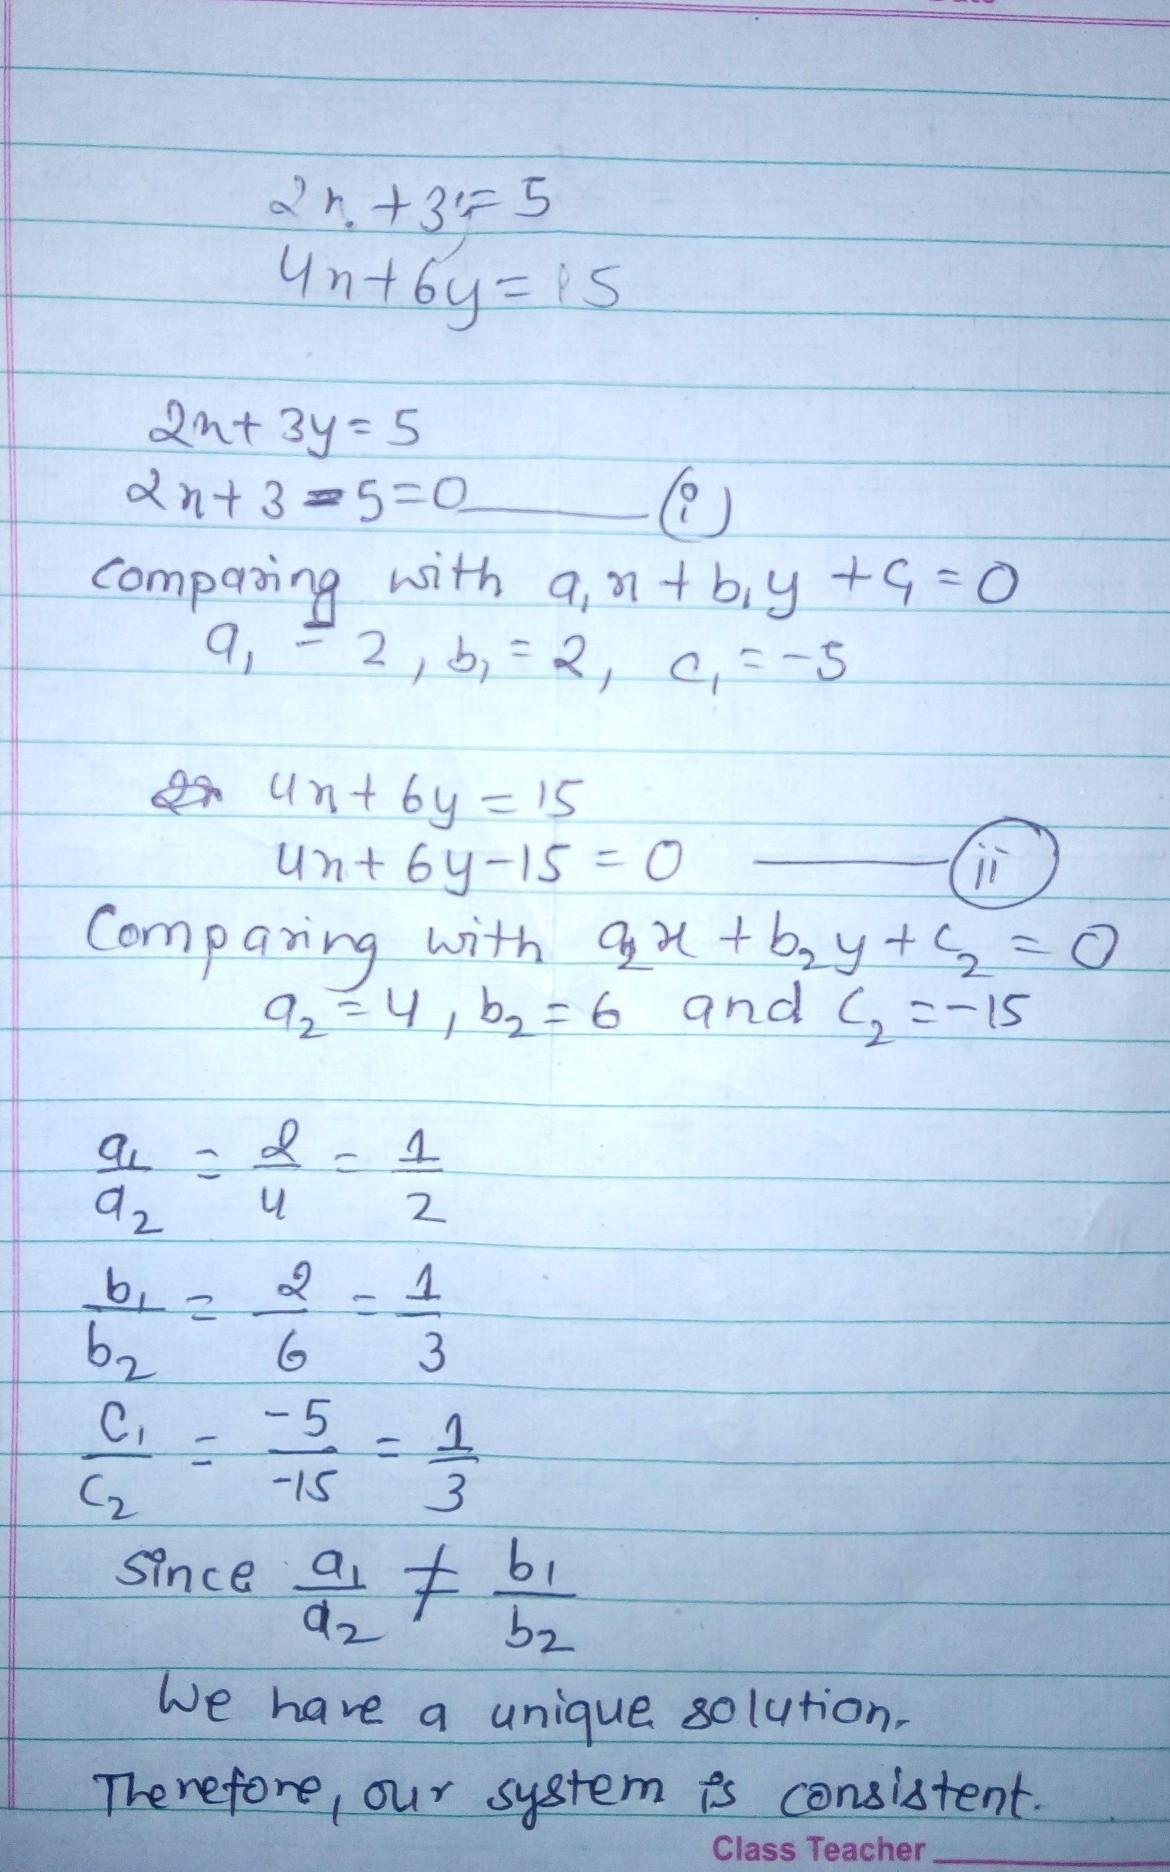 2x + 3y = 5
4x + 6y = 15
2x + 3y = 5
2x + 3 - 5 = 0 (i)
Comparing with a₁x + b₁y + c₁ = 0
a₁ = 2, b₁ = 2, c₁ = -5
4x + 6y = 15
4x + 6y - 15 = 0 (ii)
Comparing with a₂x + b₂y + c₂ = 0
a₂ = 4, b₂ = 6 and c₂ = -15
a₁/a₂ = 2/4 = 1/2
b₁/b₂ = 2/6 = 1/3
c₁/c₂ = -5/-15 = 1/3
Since a₁/a₂ ≠ b₁/b₂
We have a unique solution.
Therefore, our system is consistent.
Class Teacher